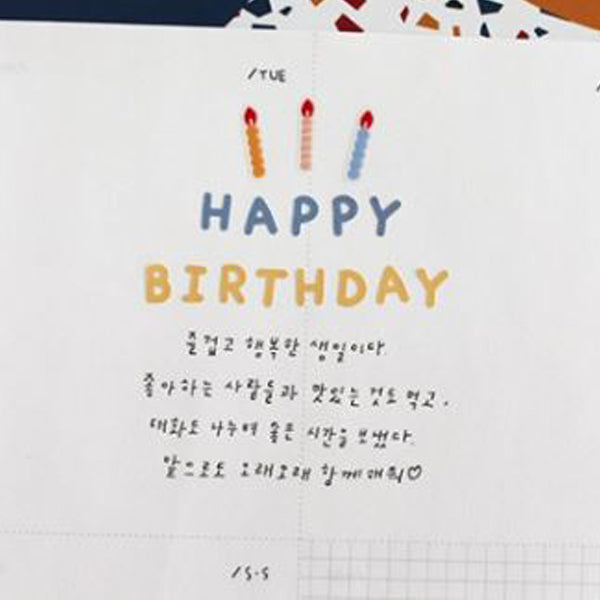 /TUE
HAPPY
BIRTHDAY
즐겁고 행복한 생일이다.
좋아하는 사람들과 맛있는 것도 먹고,
대화도 나누며 좋은 시간을 보냈다.
앞으로도 오래오래 함께해줘♡
/S·S